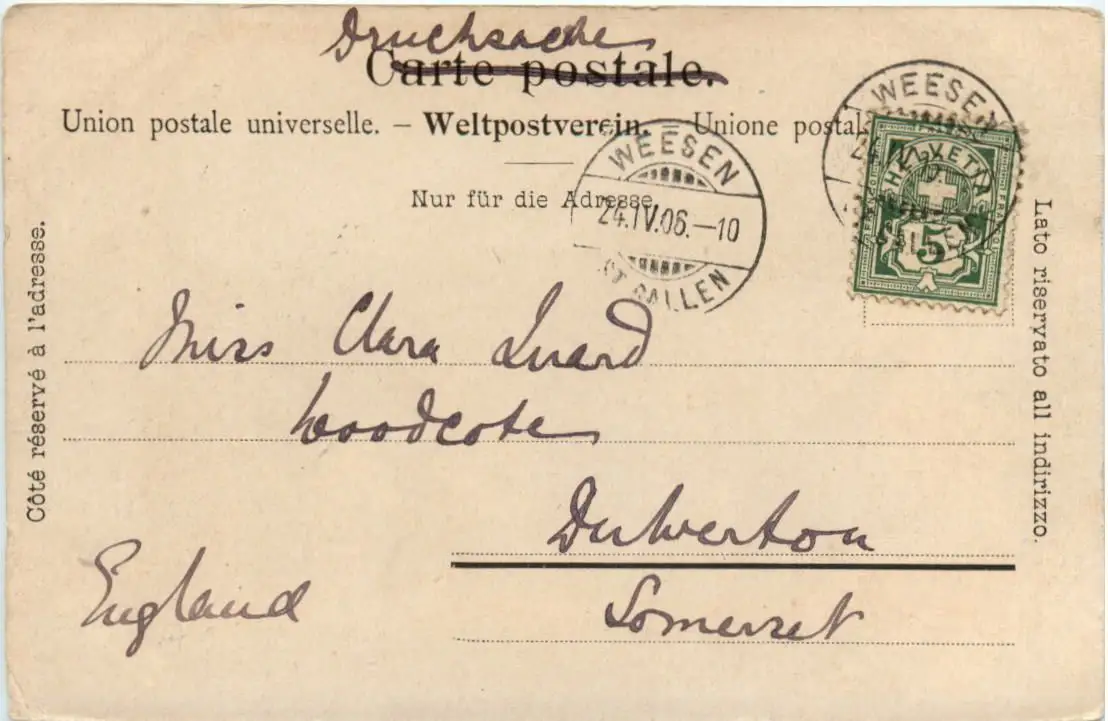 Drucksache
Carte postale.
Union postale universelle. — Weltpostverein. — Unione postal
Nur für die Adresse.
WEESEN
24.IV.06.—10
ST. GALLEN
WEESEN
HELVETIA
5
Côté réservé à l'adresse.
Lato riservato all indirizzo.
Miss Clara Luard
Woodcote
Dulverton
Somerset
England